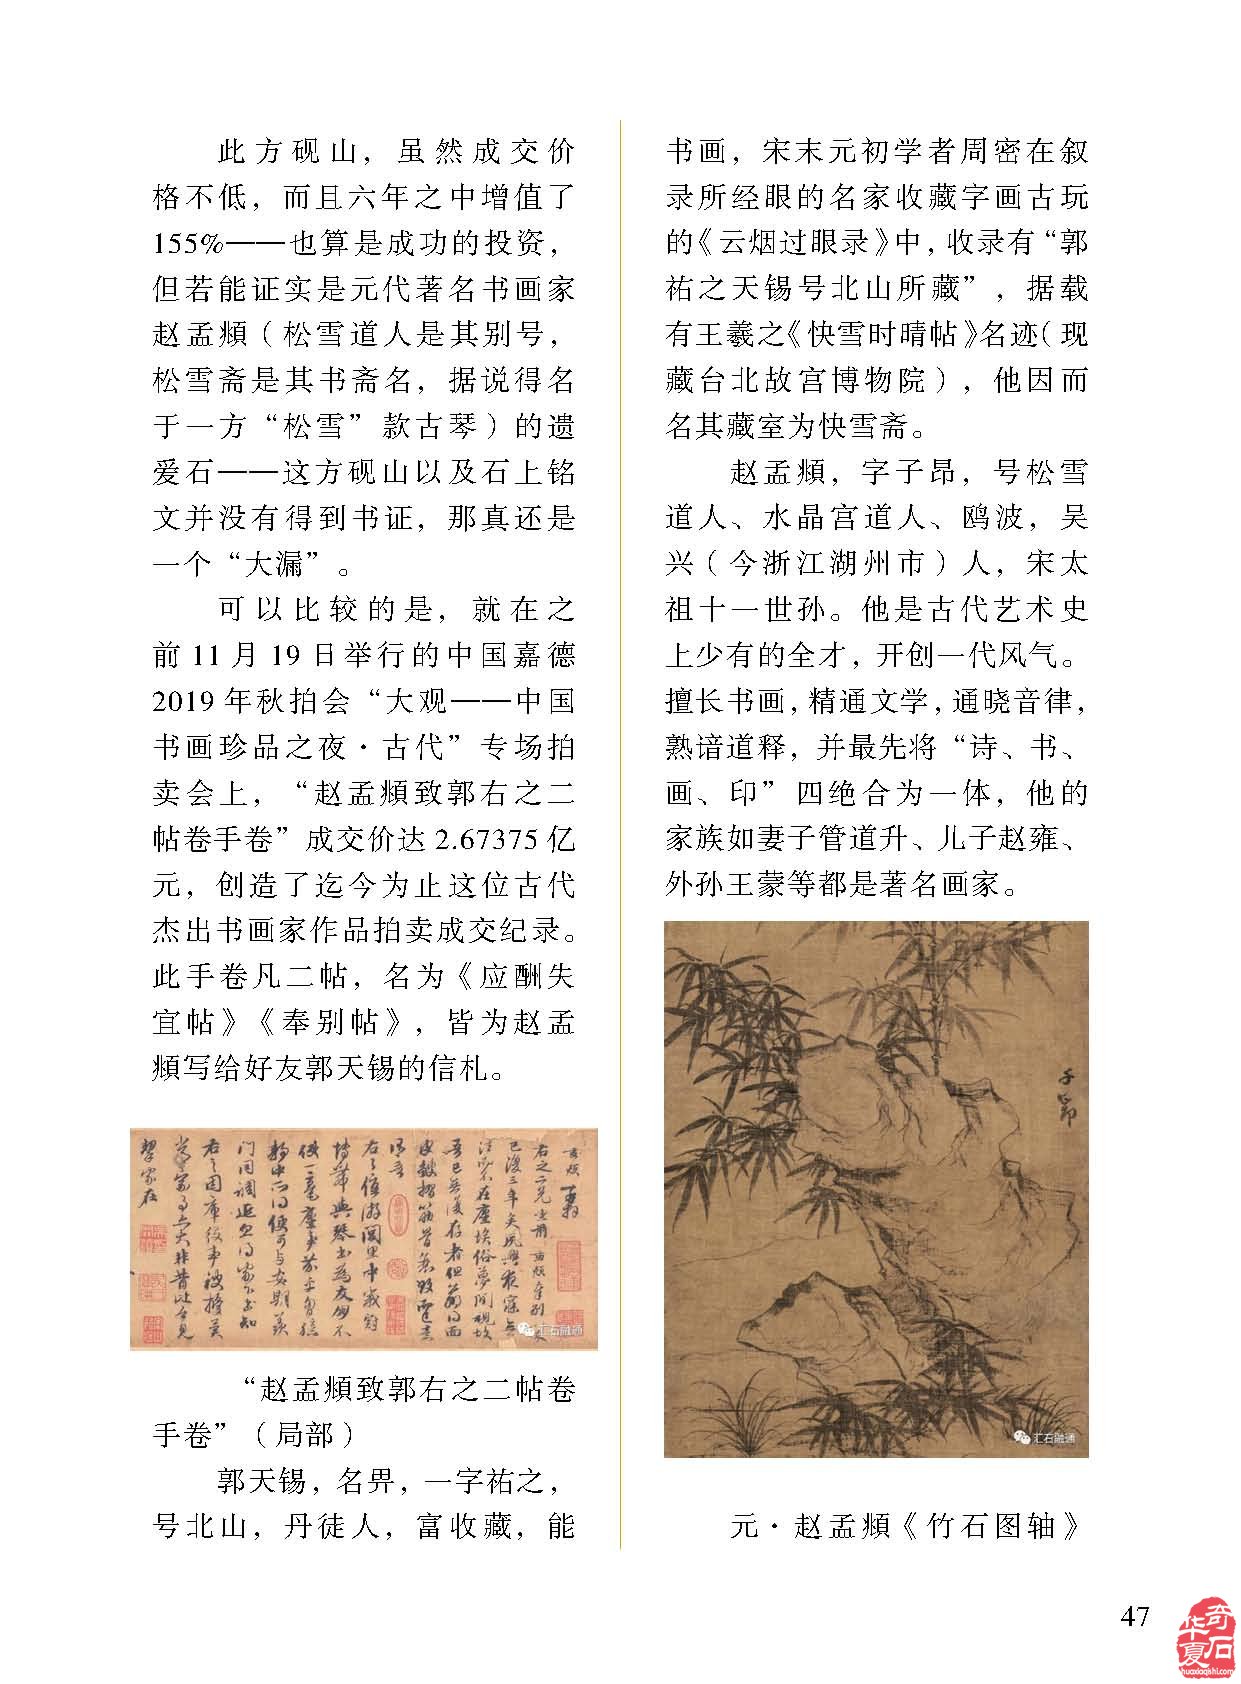 此方砚山，虽然成交价
格不低，而且六年之中增值了
155%——也算是成功的投资，
但若能证实是元代著名书画家
赵孟頫（松雪道人是其别号，
松雪斋是其书斋名，据说得名
于一方“松雪”款古琴）的遗
爱石——这方砚山以及石上铭
文并没有得到书证，那真还是
一个“大漏”。
可以比较的是，就在之
前 11 月 19 日举行的中国嘉德
2019 年秋拍会“大观——中国
书画珍品之夜·古代”专场拍
卖会上，“赵孟頫致郭右之二
帖卷手卷”成交价达 2.67375 亿
元，创造了迄今为止这位古代
杰出书画家作品拍卖成交纪录。
此手卷凡二帖，名为《应酬失
宜帖》《奉别帖》，皆为赵孟
頫写给好友郭天锡的信札。
汇石融通
“赵孟頫致郭右之二帖卷
手卷”（局部）
郭天锡，名畀，一字祐之，
号北山，丹徒人，富收藏，能
书画，宋末元初学者周密在叙
录所经眼的名家收藏字画古玩
的《云烟过眼录》中，收录有“郭
祐之天锡号北山所藏”，据载
有王羲之《快雪时晴帖》名迹（现
藏台北故宫博物院），他因而
名其藏室为快雪斋。
赵孟頫，字子昂，号松雪
道人、水晶宫道人、鸥波，吴
兴（今浙江湖州市）人，宋太
祖十一世孙。他是古代艺术史
上少有的全才，开创一代风气。
擅长书画，精通文学，通晓音律，
熟谙道释，并最先将“诗、书、
画、印”四绝合为一体，他的
家族如妻子管道升、儿子赵雍、
外孙王蒙等都是著名画家。
子昂
汇石融通
元·赵孟頫《竹石图轴》
47
华夏奇石
huaxiaqishi.com